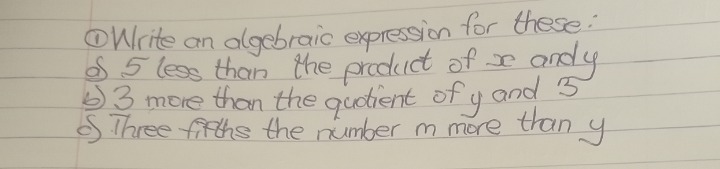 ① Write an algebraic expression for these:
a) 5 less than the product of x and y
b) 3 more than the quotient of y and 5
c) Three fifths the number m more than y